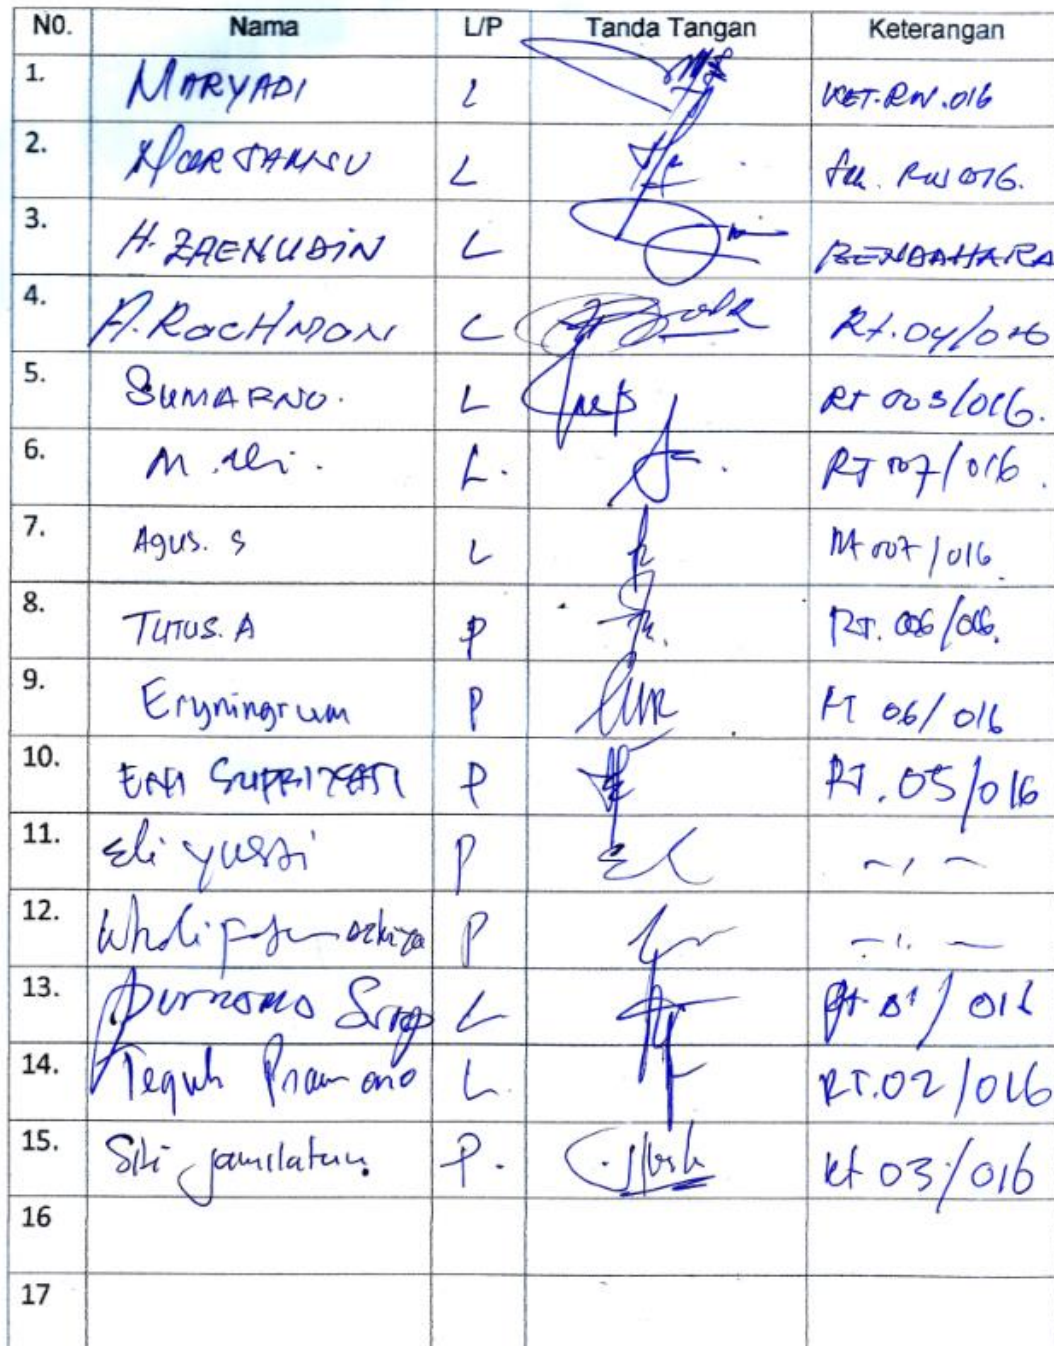 N0. Nama L/P Tanda Tangan Keterangan
1. MARYADI L KET.RW.016
2. L RW 016.
3. H. ZAENUDIN L BENDAHARA
4. A. ROCHMAN L Rt.04/016
5. SUMARNO. L RT 003/016.
6. M. Ali. L. RT 007/016.
7. Agus. S L Rt 007/016
8. TUTUS. A P RT. 006/016.
9. Eryningrum P RT 06/016
10. ENI SUPRIYATI P RT. 05/016
11. Eli yussi P -,, -
12. P -,, -
13. Purnomo L Rt. 01/016
14. Teguh Pramono L. RT.02/016
15. Siti jamilatun. P. Rt 03/016
16
17